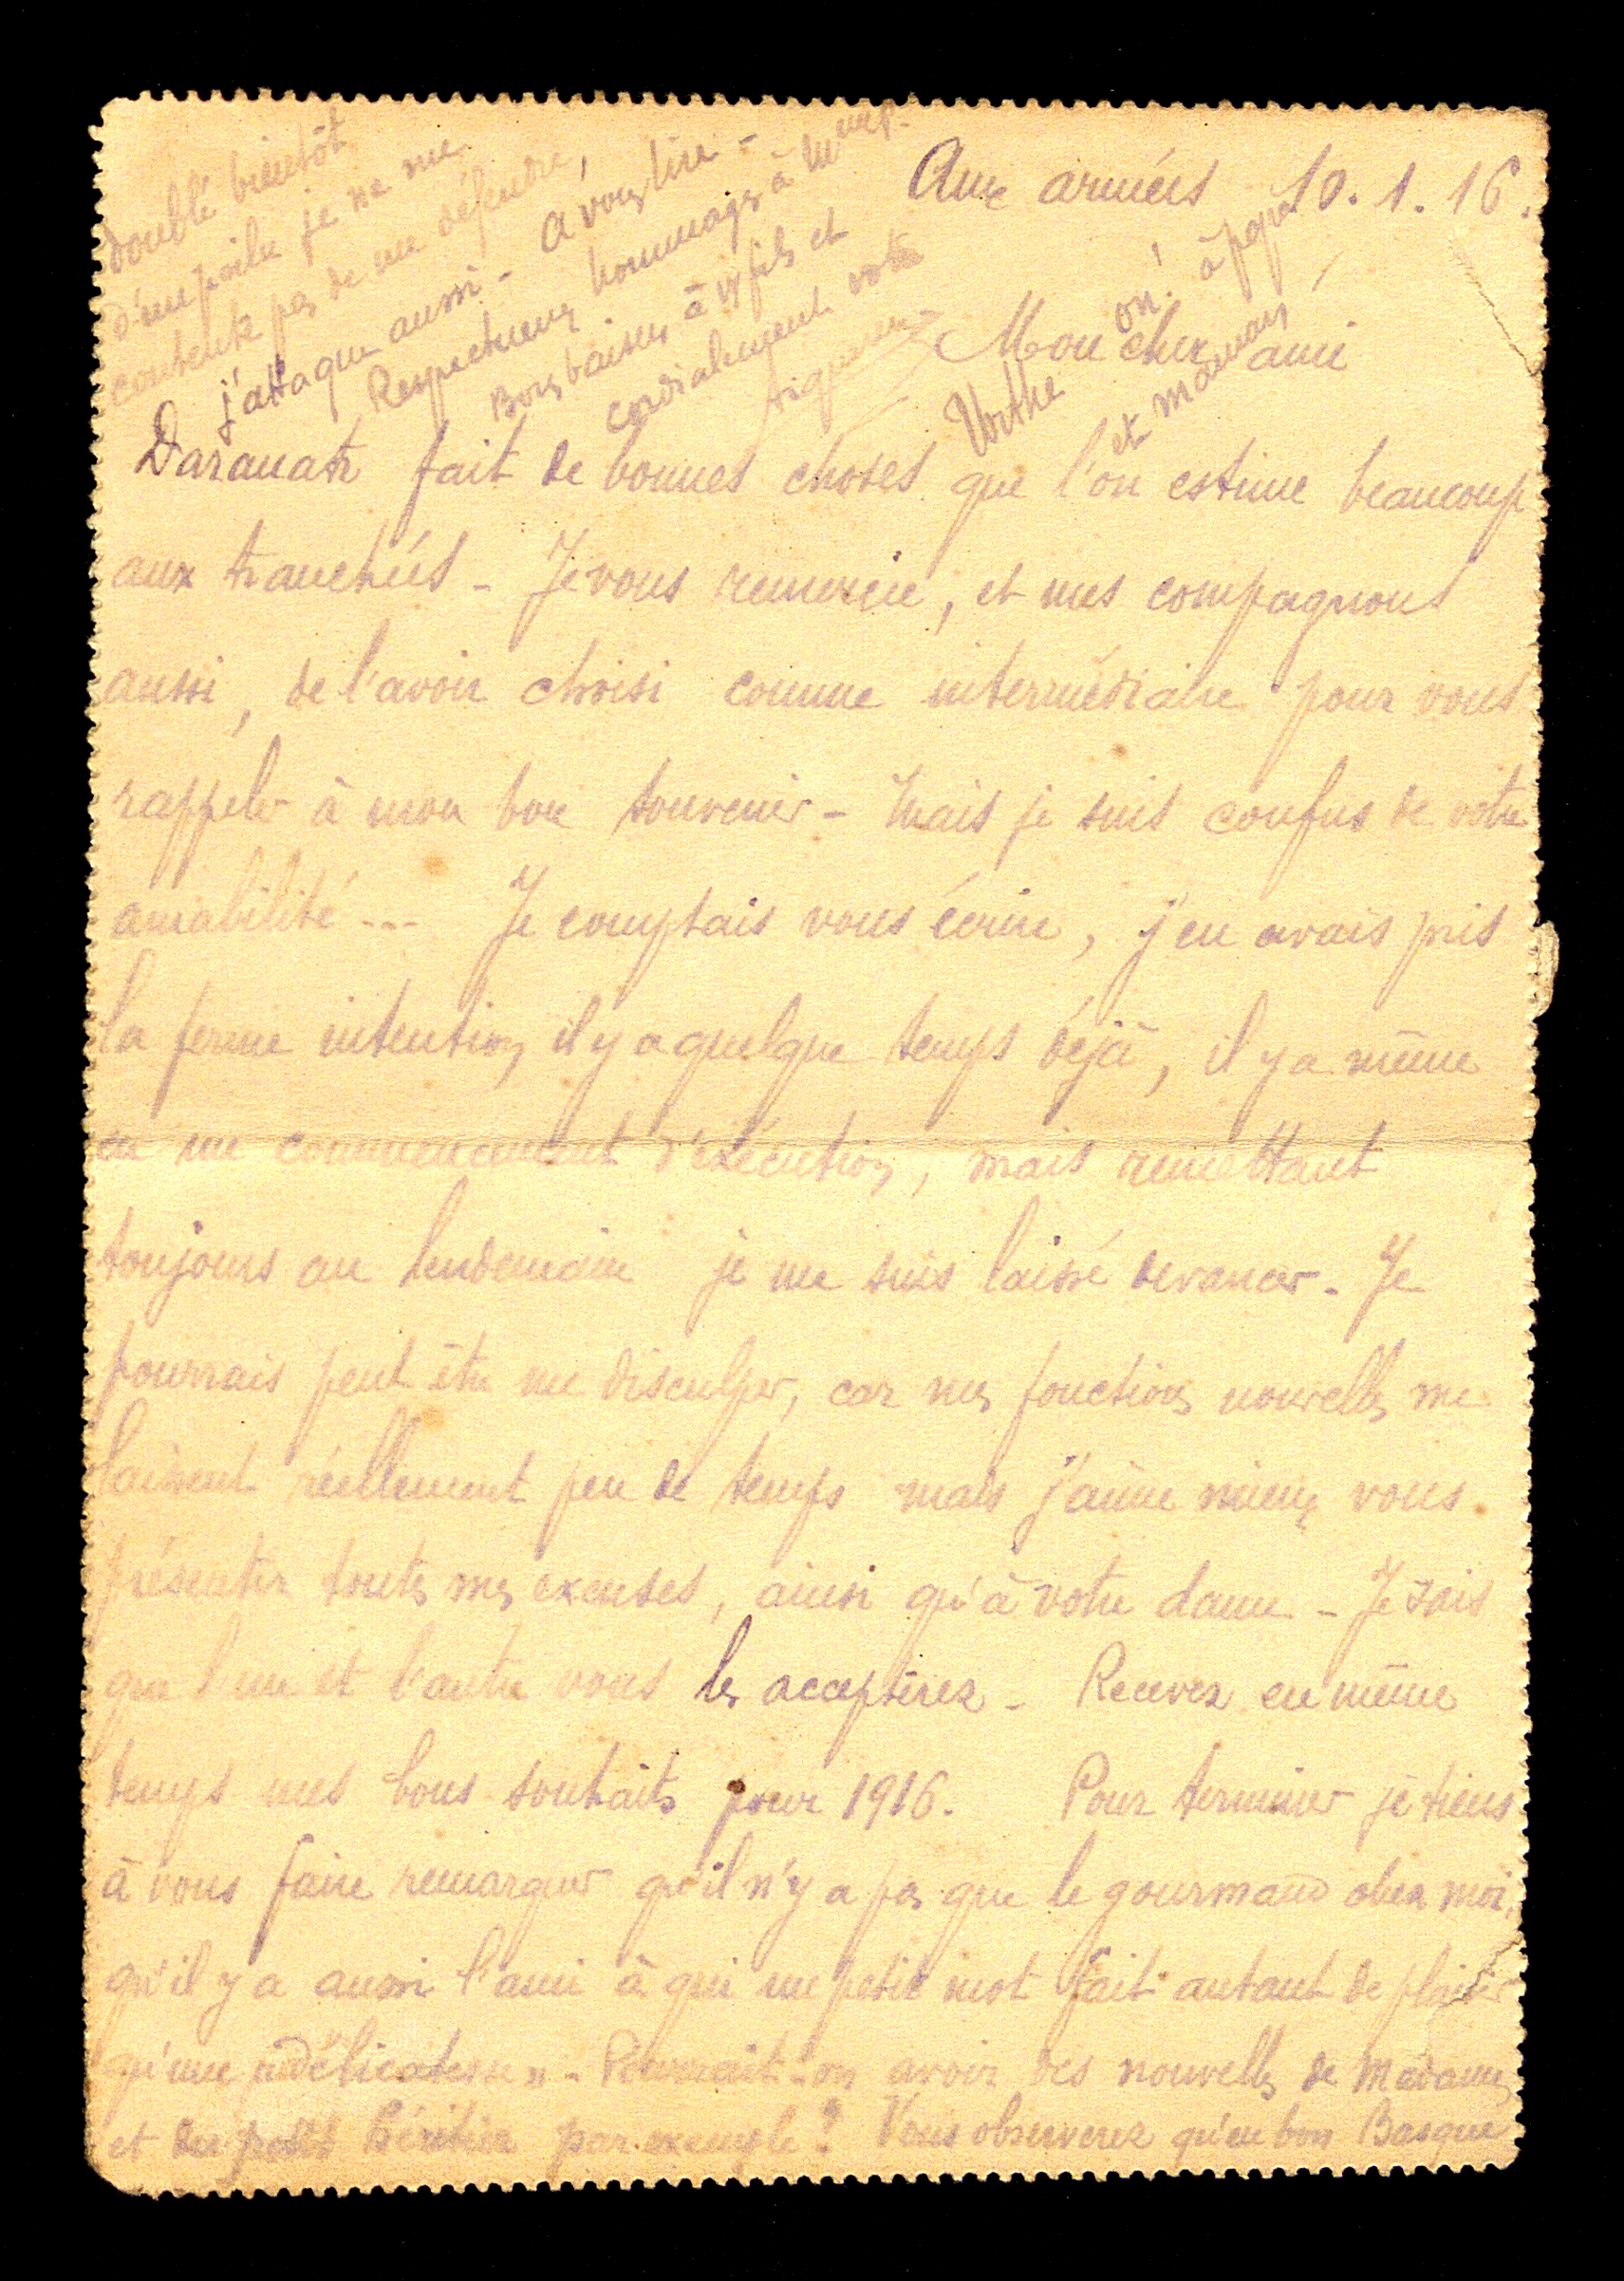 Aux armées 10.1.16.
Mon cher ami
Daranatz fait de bonnes choses que l'on estime beaucoup
aux tranchées - Je vous remercie, et mes compagnons
aussi, de l'avoir choisi comme intermédiaire pour vous
rappeler à mon bon souvenir - Mais je suis confus de votre
amabilité --- Je comptais vous écrire, j'en avais pris
la ferme intention, il y a quelque temps déjà, il y a même
eu un commencement d'exécution, mais remettant
toujours au lendemain je me suis laissé devancer. Je
pourrais peut être me disculper, car mes fonctions nouvelles me
laissent réellement peu de temps mais j'aime mieux vous
présenter toutes mes excuses, ainsi qu'à votre dame - Je sais
que l'une et l'autre vous les accepterez - Recevez en même
temps mes bons souhaits pour 1916. Pour terminer je tiens
à vous faire remarquer qu'il n'y a pas que le gourmand chez moi,
qu'il y a aussi l'ami à qui un petit mot fait autant de plaisir
qu'une "délicatesse" - Pourrait-on avoir des nouvelles de Madame,
et du petit héritier par exemple? Vous observerez qu'en bon Basque
doublé bientôt
d'un poilu je ne me
contente pas de me défendre,
j'attaque aussi - A vous lire -
Respectueux hommages à Mme
Bons baisers à vos fils et
cordialement votre
on! à papa
et maman